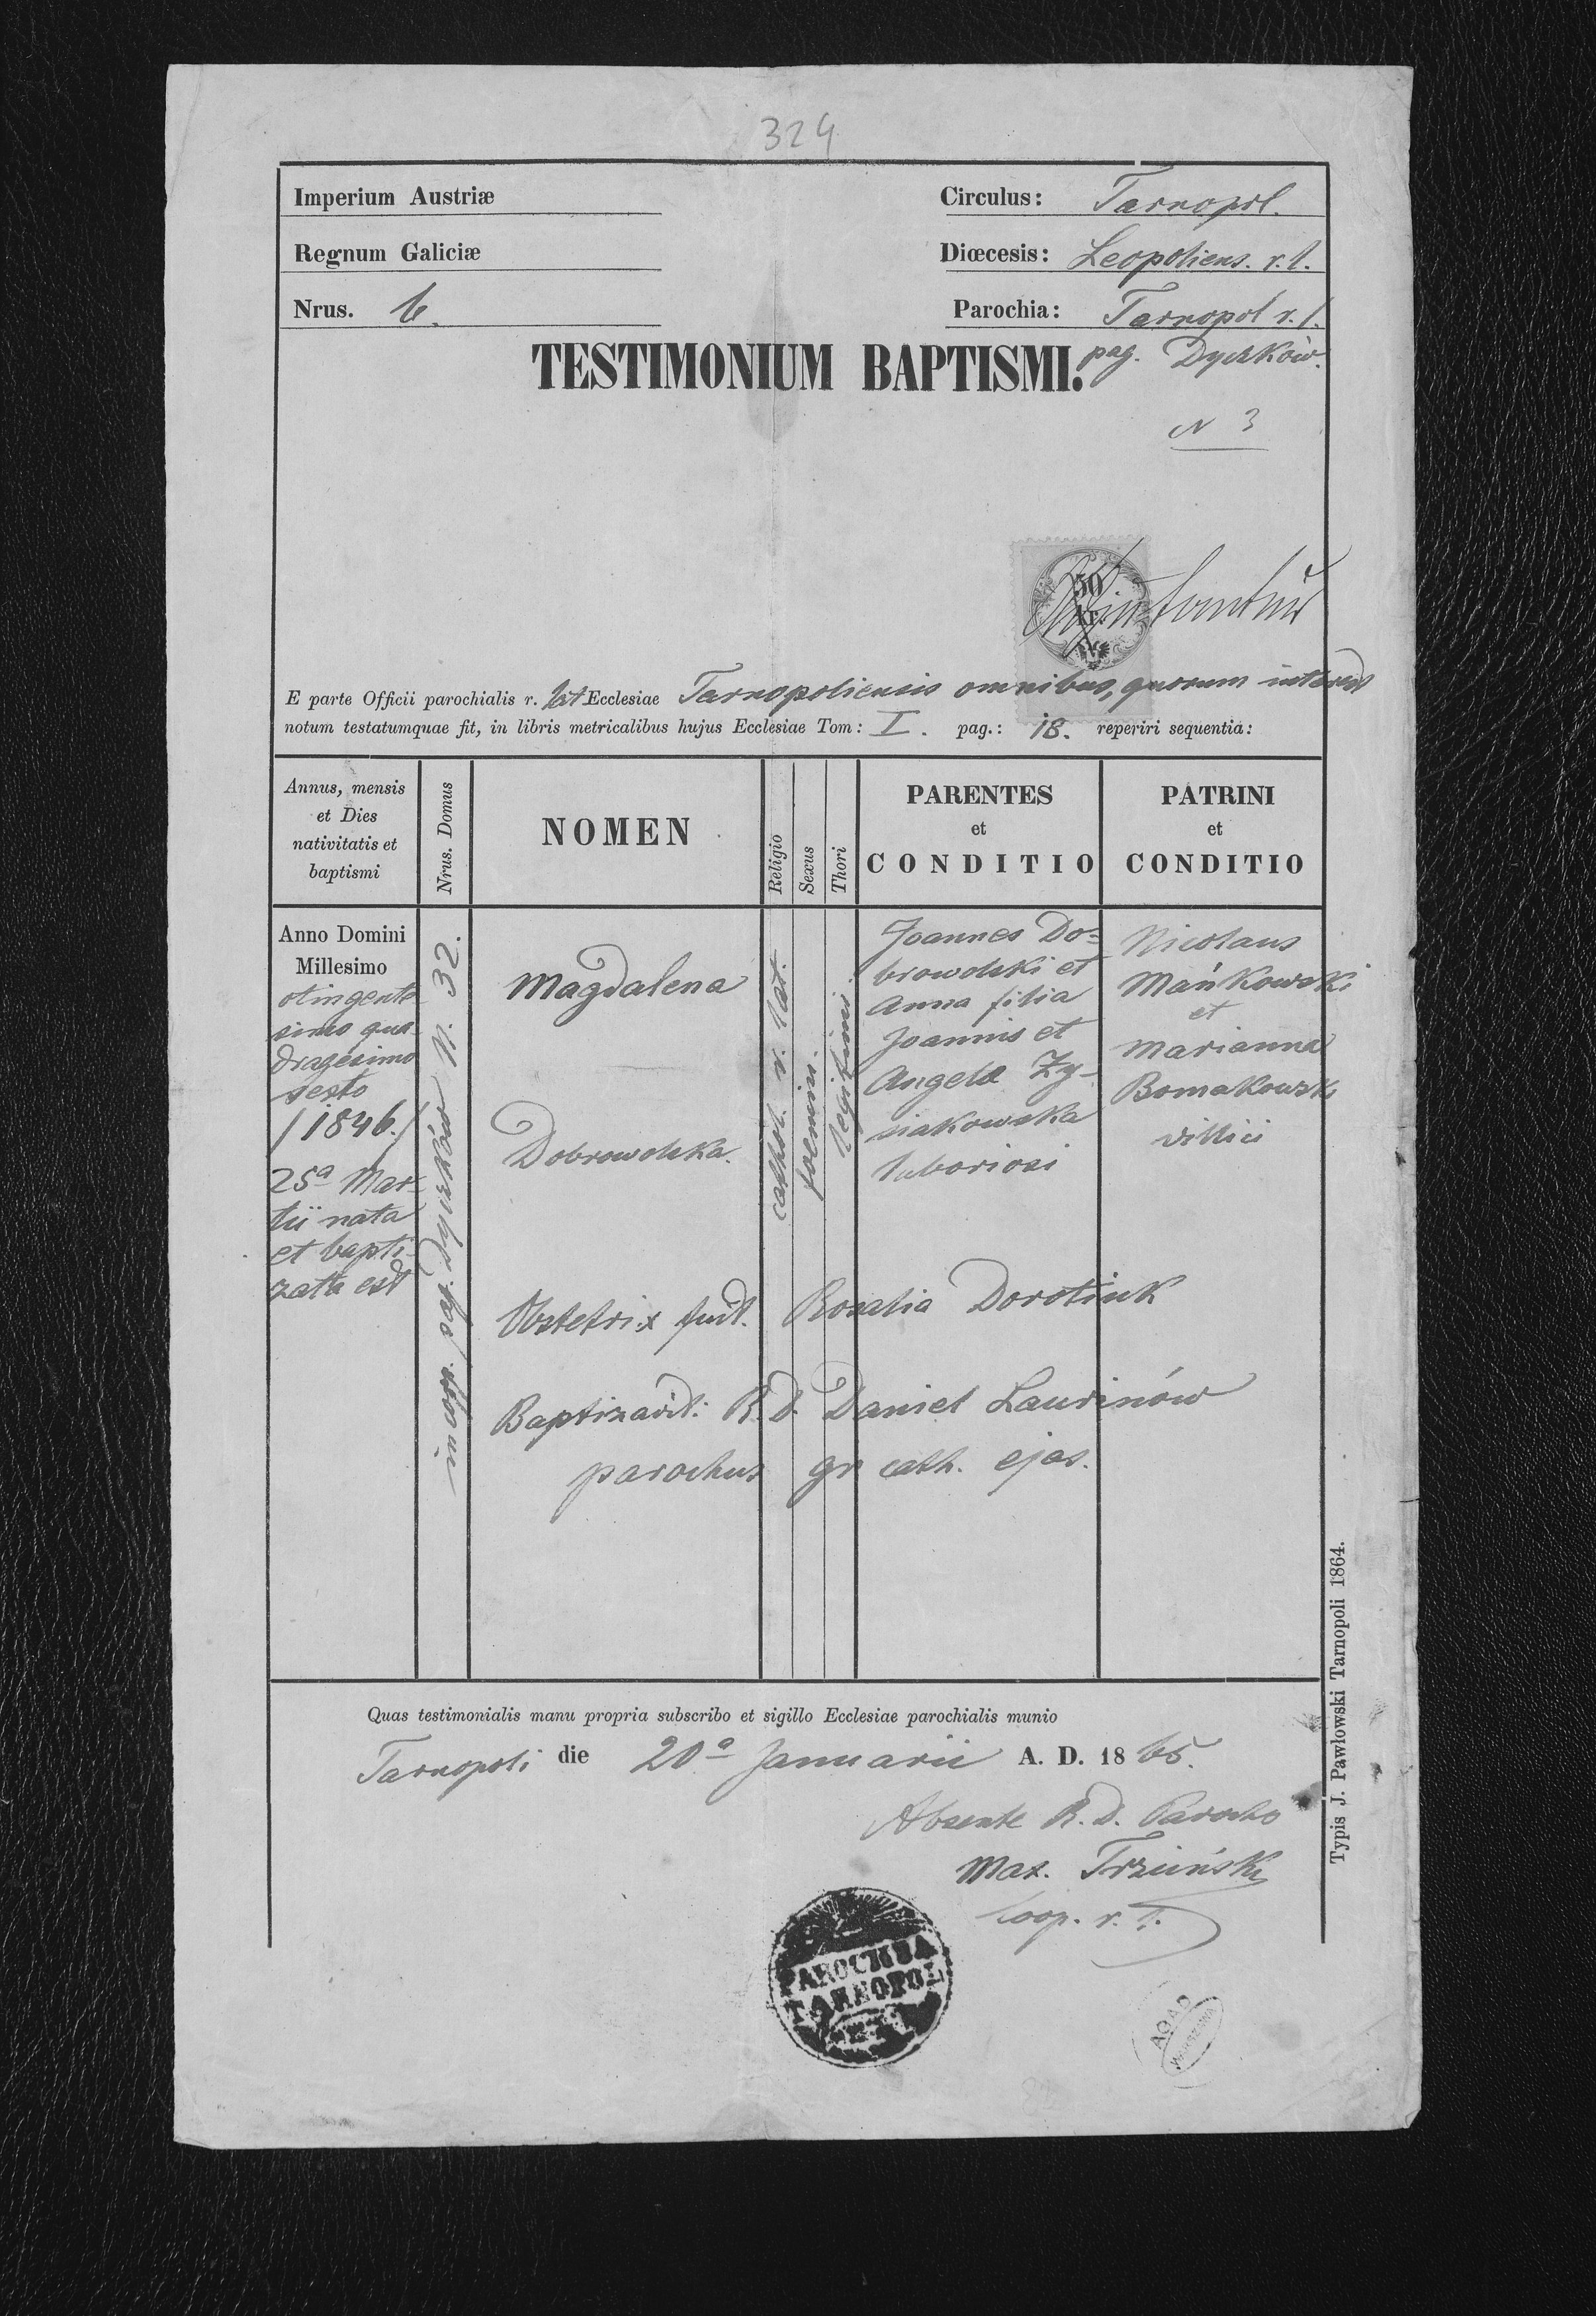 324
Imperium Austriæ
Circulus: Tarnopol.
Regnum Galiciæ
Diœcesis: Leopoliens. r. l.
Nrus. 6.
Parochia: Tarnopol r. l.
TESTIMONIUM BAPTISMI.
pag. Dyczków.
N 3
50
kr.
E parte Officii parochialis r. lat Ecclesiae Tarnopoliensis omnibus, quorum interest
notum testatumquae fit, in libris metricalibus hujus Ecclesiae Tom: I. pag.: 18. reperiri sequentia:
Annus, mensis
et Dies
nativitatis et
baptismi
Nrus. Domus
NOMEN
Religio
Sexus
Thori
PARENTES
et
CONDITIO
PATRINI
et
CONDITIO
Anno Domini
Millesimo
octingente
simo qua-
dragesimo
sexto
/1846./
25a Mar-
tii nata
et bapti-
zata est
in pag. Dyczków N. 32.
Magdalena
Dobrowolska.
cathol. r. lat.
foemin.
legitimi
Joannes Do-
browolski et
Anna filia
Joannis et
Angela Zy-
siakowska
laboriosi
Nicolaus
Mańkowski
et
Marianna
Bomakowski
villici
Obstetrix fuit. Rosalia Dorotiuk
Baptizavit: R. d. Daniel Laurinów
parochus gr cath. ejas.
Quas testimonialis manu propria subscribo et sigillo Ecclesiae parochialis munio
Tarnopoli die 20a Januarii A. D. 1865.
Absente R. D. Parocho
Max. Trzciński
Coop. r. l.
PAROCHIA
TARNOPOL
AGAD
WARSZAWA
Typis J. Pawłowski Tarnopoli 1864.